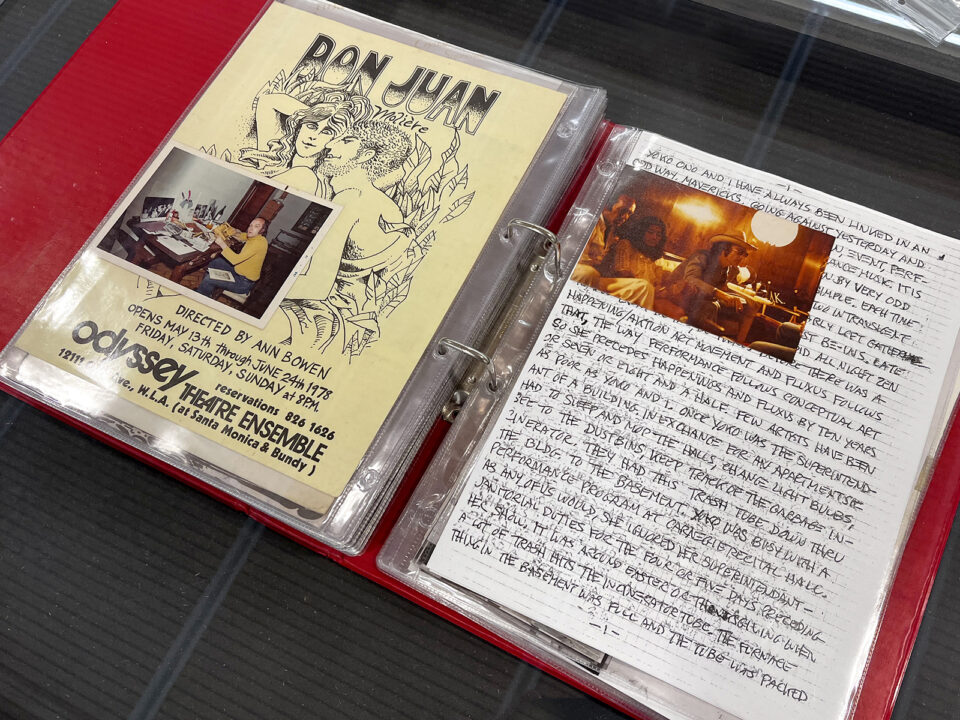 DON JUAN
Molière
DIRECTED BY ANN BOWEN
OPENS MAY 13th through JUNE 24th 1978
FRIDAY, SATURDAY, SUNDAY at 8PM.
odyssey THEATRE ENSEMBLE
reservations 826 1626
12111 ave. W.L.A. (at Santa Monica & Bundy)
-1-
YOKO ONO AND I HAVE ALWAYS BEEN LINKED IN AN
ODD WAY, MAVERICKS, GOING AGAINST YESTERDAY AND
EVENT, PERF-
ANCE MUSIC. IT IS
BY VERY ODD
EACH TIME
TWO IN TRANSLENT
BE-INS. BATE
ALL NIGHT ZEN
HAPPENING/AKTION ART MOVEMENT AND FLUXUS THERE WAS A
THAT, THE WAY PERFORMANCE FOLLOWS CONCEPTUAL ART
SO SHE PRECEDES HAPPENINGS AND FLUXUS BY TEN YEARS
OR SEVEN OR EIGHT AND A HALF. FEW ARTISTS HAVE BEEN
AS POOR AS YOKO AND I. ONCE YOKO WAS THE SUPERINTEND-
ANT OF A BUILDING, IN EXCHANGE FOR AN APARTMENT SHE
HAD TO SLEEP AND MOP THE HALLS, CHANGE LIGHT BULBS,
SEE TO THE DUSTBINS, KEEP TRACK OF THE GARBAGE, IN-
CINERATOR. THEY HAD THIS TRASH TUBE DOWN THRU
THE BLDG TO THE BASEMENT. YOKO WAS BUSY WITH A
PERFORMANCE PROGRAM AT CARNEGIE RECITAL HALL.
AS ANY OF US WOULD, SHE IGNORED HER SUPERINTENDANT-
JANITORIAL DUTIES FOR THE FOUR OR FIVE DAYS PRECEDING
HER SHOW. IT WAS AROUND EASTER OR THANKSGIVING WHEN
A LOT OF TRASH HITS THE INCINERATOR TUBE. THE FURNACE
THING IN THE BASEMENT WAS FULL AND THE TUBE WAS PACKED
-1-